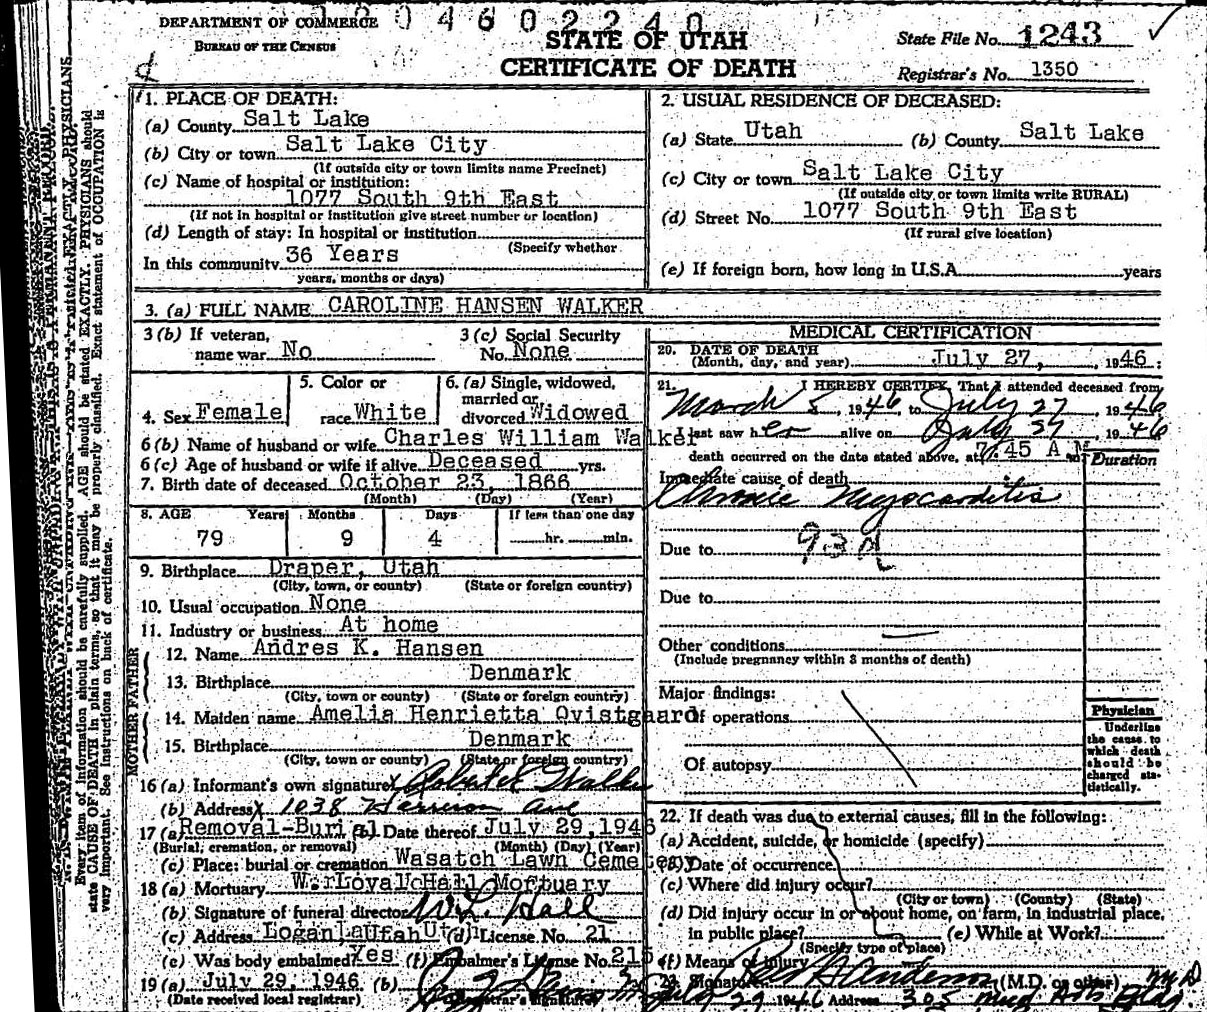 DEPARTMENT OF COMMERCE
BUREAU OF THE CENSUS
04602240
STATE OF UTAH
CERTIFICATE OF DEATH
State File No. 1243
Registrar's No. 1350
1. PLACE OF DEATH:
(a) County Salt Lake
(b) City or town Salt Lake City
(If outside city or town limits name Precinct)
(c) Name of hospital or institution:
1077 South 9th East
(If not in hospital or institution give street number or location)
(d) Length of stay: In hospital or institution
(Specify whether
In this community 36 Years
years, months or days)
2. USUAL RESIDENCE OF DECEASED:
(a) State Utah (b) County Salt Lake
(c) City or town Salt Lake City
(If outside city or town limits write RURAL)
(d) Street No. 1077 South 9th East
(If rural give location)
(e) If foreign born, how long in U.S.A. years
3. (a) FULL NAME CAROLINE HANSEN WALKER
3 (b) If veteran, name war No
3 (c) Social Security No. None
4. Sex Female
5. Color or race White
6. (a) Single, widowed, married or divorced Widowed
6 (b) Name of husband or wife Charles William Walker
6 (c) Age of husband or wife if alive Deceased yrs.
7. Birth date of deceased October 23, 1866
(Month) (Day) (Year)
8. AGE Years Months Days If less than one day
79 9 4 hr. min.
9. Birthplace Draper, Utah
(City, town, or county) (State or foreign country)
10. Usual occupation None
11. Industry or business At home
FATHER
12. Name Andres K. Hansen
13. Birthplace Denmark
(City, town or county) (State or foreign country)
MOTHER
14. Maiden name Amelia Henrietta Qvistgaard
15. Birthplace Denmark
(City, town or county) (State or foreign country)
16 (a) Informant's own signature x Robert Walker
(b) Address x 1038 Harrison Ave
17 (a) Removal-Burial (b) Date thereof July 29, 1946
(Burial, cremation, or removal) (Month) (Day) (Year)
(c) Place: burial or cremation Wasatch Lawn Cemetery
18 (a) Mortuary W. Loyal Hall Mortuary
(b) Signature of funeral director W.L. Hall
(c) Address Logan, Utah (d) License No. 21
(e) Was body embalmed? Yes (f) Embalmer's License No. 215
19 (a) July 29, 1946 (b)
(Date received local registrar) (Registrar's signature)
MEDICAL CERTIFICATION
20. DATE OF DEATH
(Month, day, and year) July 27, 1946
21. I HEREBY CERTIFY, That I attended deceased from
March 5, 1946, to July 27, 1946
I last saw her alive on July 27, 1946
death occurred on the date stated above, at 7:45 A M
Duration
Immediate cause of death
Chronic Myocarditis
Due to 93
Due to
Other conditions
(Include pregnancy within 3 months of death)
Major findings:
Of operations
Of autopsy
Physician
Underline the cause to which death should be charged statistically.
22. If death was due to external causes, fill in the following:
(a) Accident, suicide, or homicide (specify)
(b) Date of occurrence
(c) Where did injury occur?
(City or town) (County) (State)
(d) Did injury occur in or about home, on farm, in industrial place,
in public place? (e) While at Work?
(Specify type of place)
(f) Means of injury
23. Signature Anderson (M.D. or other) M D
July 29 1946 Address 305 Med Arts Bldg.
Every item of information should be carefully supplied. AGE should be stated EXACTLY. PHYSICIANS should
state CAUSE OF DEATH in plain terms, so that it may be properly classified. Exact statement of OCCUPATION is
very important. See instructions on back of certificate.